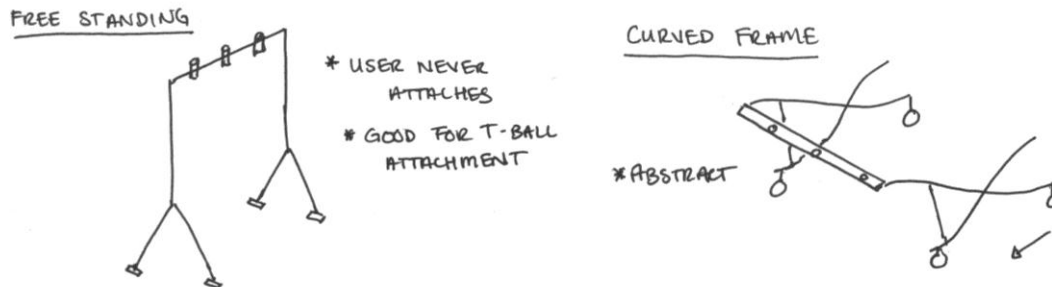 FREE STANDING
* USER NEVER
ATTACHES
* GOOD FOR T-BALL
ATTACHMENT
CURVED FRAME
* ABSTRACT